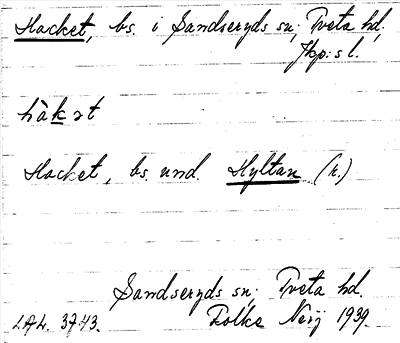 Hacket, bs. i Sandseryds sn; Tveta hd,
Jkp:s l.
håkət
Hacket, bs. und. Hyltan (r.)
Sandseryds sn; Tveta hd.
L.A.L. 3743. Folke Neij 1939.